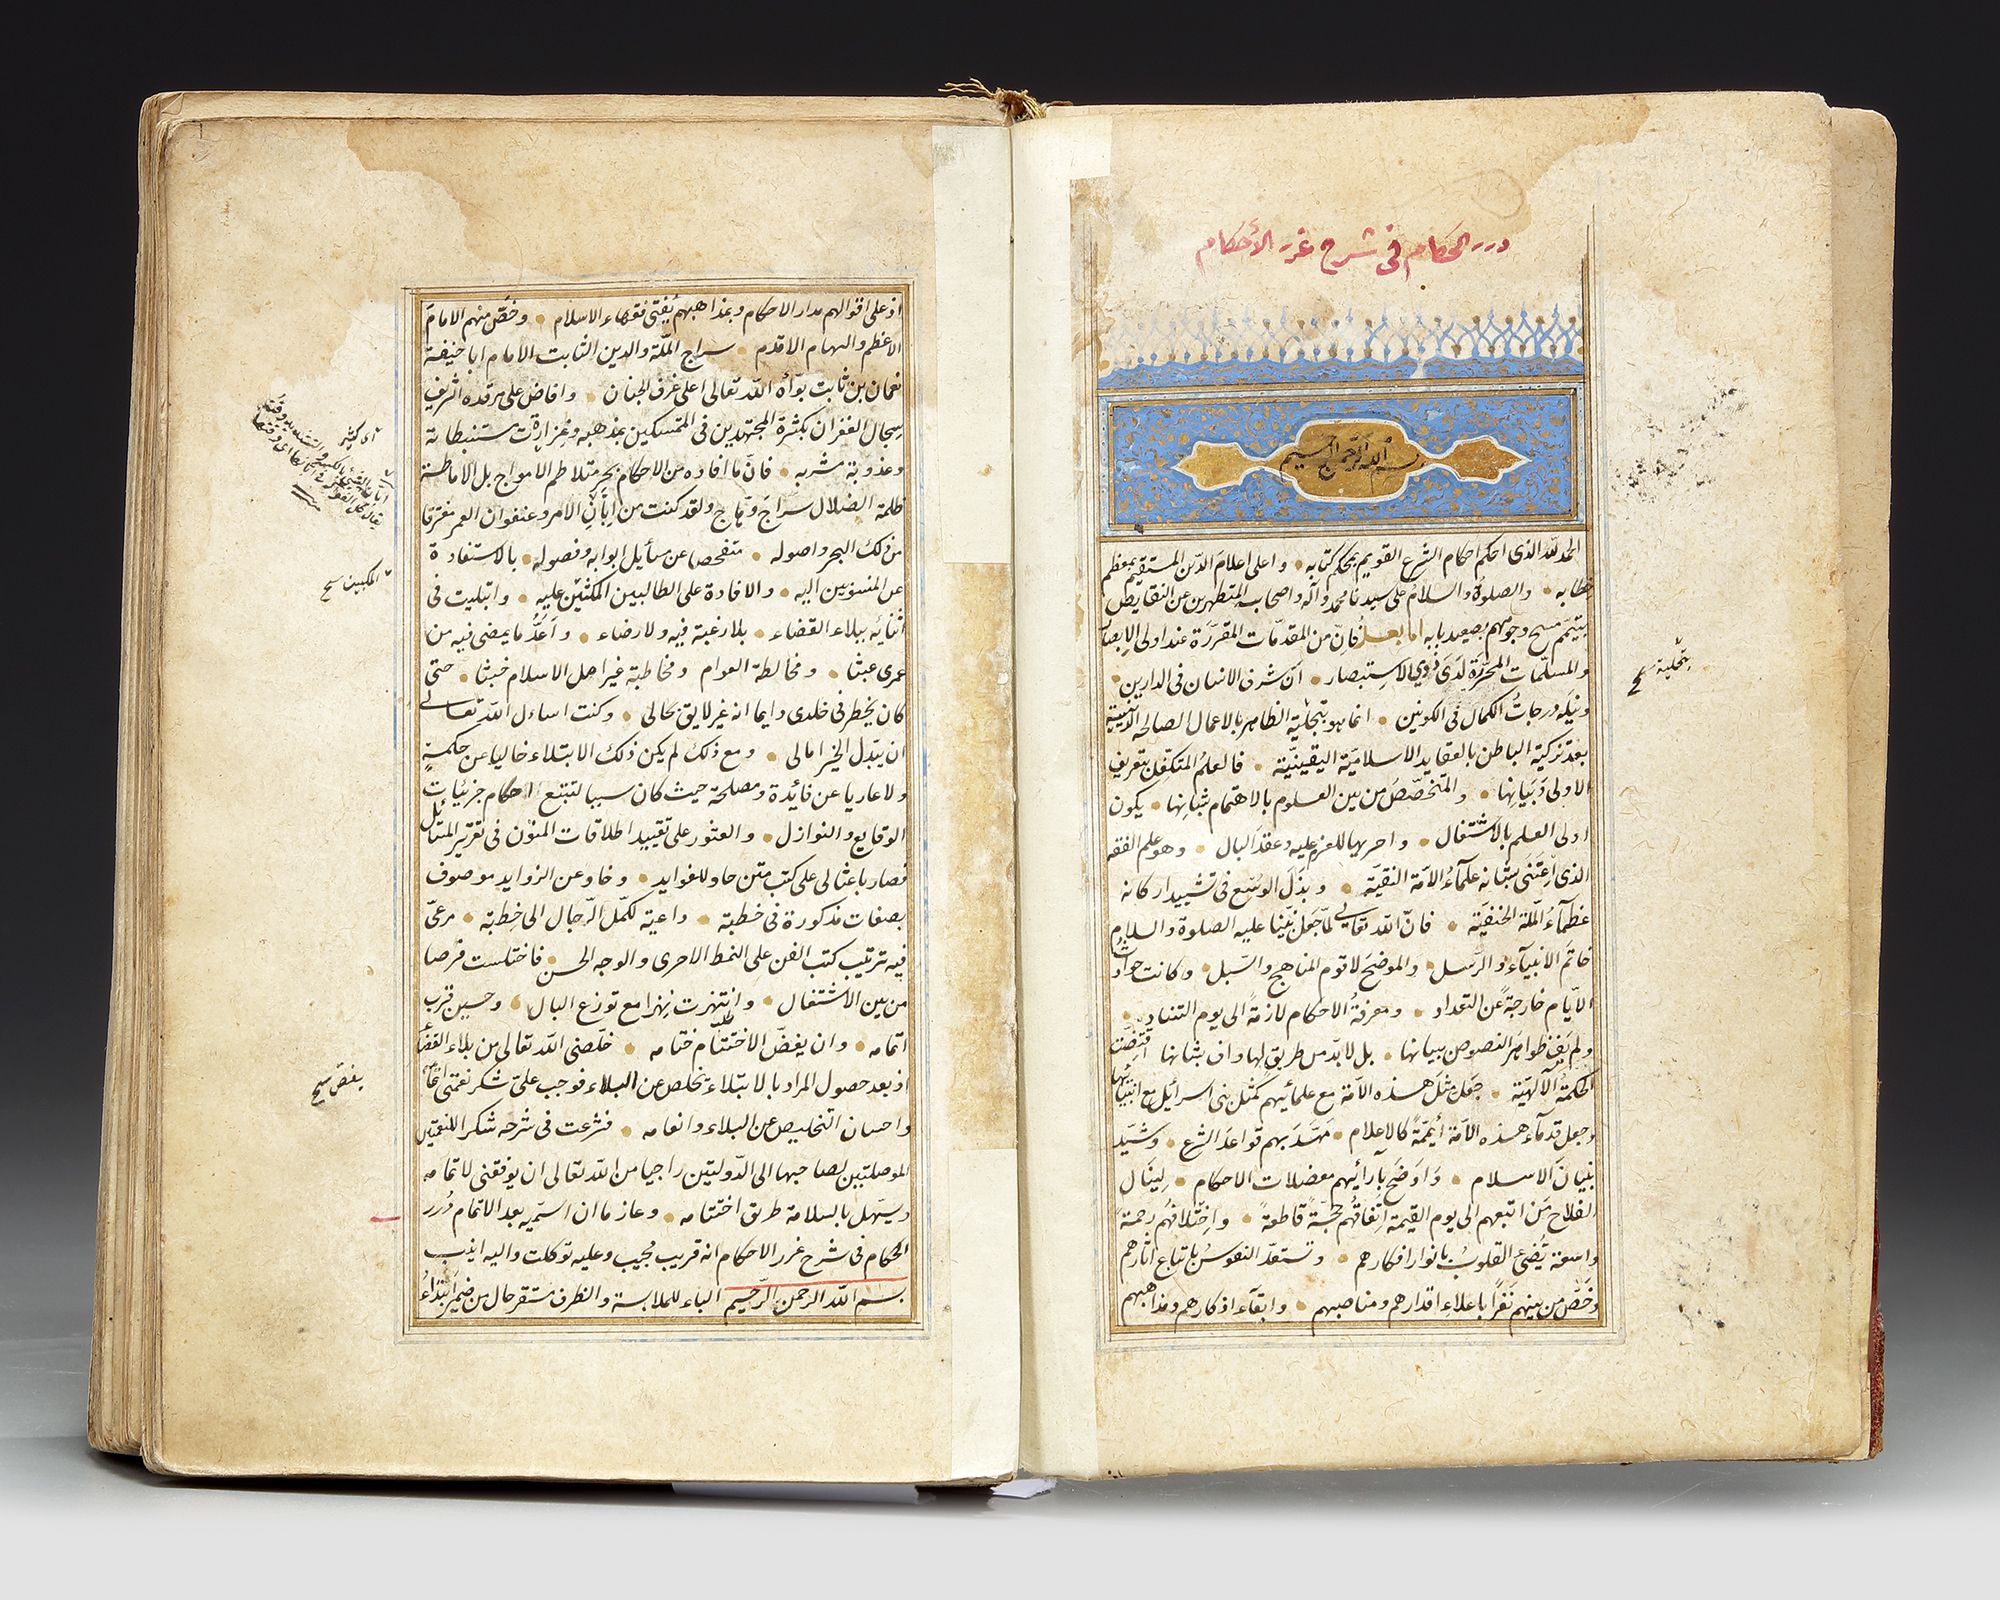 درر الحكام فى شرح غرر الأحكام
بسم الله الرحمن الرحيم
الحمد لله الذى احكم احكام الشرع القويم بمحكم كتابه واعلى اعلام الدين المستقيم بمعظم
خطابه والصلوة والسلام على سيدنا محمد وآله واصحابه المتطهرين عن النقايص
بتيمم مسح وجوههم بصعيد بابه اما بعد فان من المقدمات المقررة عند اولى الابصار
والمسلمات المحررة لدى ذوي الاستبصار ان شرف الانسان فى الدارين
ونيله درجات الكمال فى الكونين انما هو بتحلية الظاهر بالاعمال الصالحة الدينية
بعد تزكية الباطن بالعقايد الاسلامية اليقينية فالعلم المتكفل بتعريف
الاولى وبيانها والمتخصص من بين العلوم بالاهتمام بشانها يكون
اولى العلم بالاشتغال واحريها للعزم عليه وعقد البال وهو علم الفقه
الذى اعتنى بشانه علمآء الامة النقية وبذل الوسع فى تشييد اركانه
عظمآء الملة الحنفية فان الله تعالى لما جعل نبينا عليه الصلوة والسلام
خاتم الانبيآء والرسل والموضح لاقوم المناهج والسبل وكانت حوادث
الايام خارجة عن التعداد ومعرفة الاحكام لازمة الى يوم التناد
ولم يف ظواهر النصوص ببيانها بل لا بد من طريق لها واف بشانها اقتضت
الحكمة الآلهية جعل مثل هذه الامة مع علمائهم كمثل بنى اسرائيل مع انبيائها
وجعل قدمآء هذه الامة أيمة كالاعلام مهد بهم قواعد الشرع وشيد
بنيان الاسلام واوضح بآرائهم معضلات الاحكام لينال
الفلاح من اتبعهم الى يوم القيمة اتفاقهم حجة قاطعة واختلافهم رحمة
واسعة يضئ القلوب بانوار افكارهم وتستعد النفوس باتباع آثارهم
وخص من بينهم نفرا باعلاء اقدارهم ومناصبهم وابقآء اذكارهم ومذاهبهم
بتحلية صح
اذ على اقوالهم مدار الاحكام وبمذاهبهم يفتى فقهاء الاسلام وخص منهم الامام
الاعظم والهمام الاقدم سراج الملة والدين الثابت الامام ابا حنيفة
نعمان بن ثابت بوأه الله تعالى اعلى غرف الجنان وافاض على مرقده الشريف
سجال الغفران بكثرة المجتهدين فى المتمسكين بمذهبه وغزارة مستنبطاته
وعذوبة مشربه فان ما افاده من الاحكام بحر متلاطم الامواج بل لاماطة
ظلمة الضلال سراج وهاج ولقد كنت من ابان الامر وعنفوان العمر مغترفا
من ذلك البحر واصوله متفحصا عن مسايل ابوابه وفصوله بالاستفادة
عن المنسوبين اليه والافادة على الطالبين المكثين عليه وابتليت فى
اثنائه ببلاء القضاء بلا رغبة فيه ولا رضاء واعد ما يمضى فيه من
عمرى عبثا ومخالطة العوام ومخاطبة غير اهل الاسلام خبثا حتى
كان يخطر فى خلدى دايما انه غير لايق بحالى وكنت اساءل الله تعالى
ان يبدل الخير امالى ومع ذلك لم يكن ذلك الابتلاء خاليا عن حكمة
ولا عاريا عن فايدة ومصلحة حيث كان سببا لتتبع احكام جزئيات
الوقايع والنوازل والعثور على تقييد اطلاقات المتون فى تقرير المسائل
فصار باعثا لى على كتب متن حاو للفوايد وخاو عن الزوايد موصوف
بصفات مذكورة فى خطبة داعية لكمل الرجال الى خطبة مرعى
فيه ترتيب كتب الفن على النمط الاحرى والوجه الحسن فاختلست فرصا
من بين الاشتغال وانتهزت نهزا مع توزع البال وحين قرب
اتمامه وان يفض الاختتام ختامه خلصنى الله تعالى من بلاء القضاء
اذ بعد حصول المراد بالابتلاء يتخلص عن البلاء فوجب على شكر نعمتى
واحسان التخليص عن البلاء وانعامه فشرعت فى شرحه شكرا للنعمتين
الموصلتين لصاحبها الى الدولتين راجيا من الله تعالى ان يوفقنى لاتمامه
ويسهل بالسلامة طريق اختتامه وعازما ان اسميه بعد الاتمام درر
الحكام فى شرح غرر الاحكام انه قريب مجيب وعليه توكلت واليه انيب
بسم الله الرحمن الرحيم الباء للملابسة والظرف مستقر حال من ضمير ابتداء
المكبين صح
يفض صح